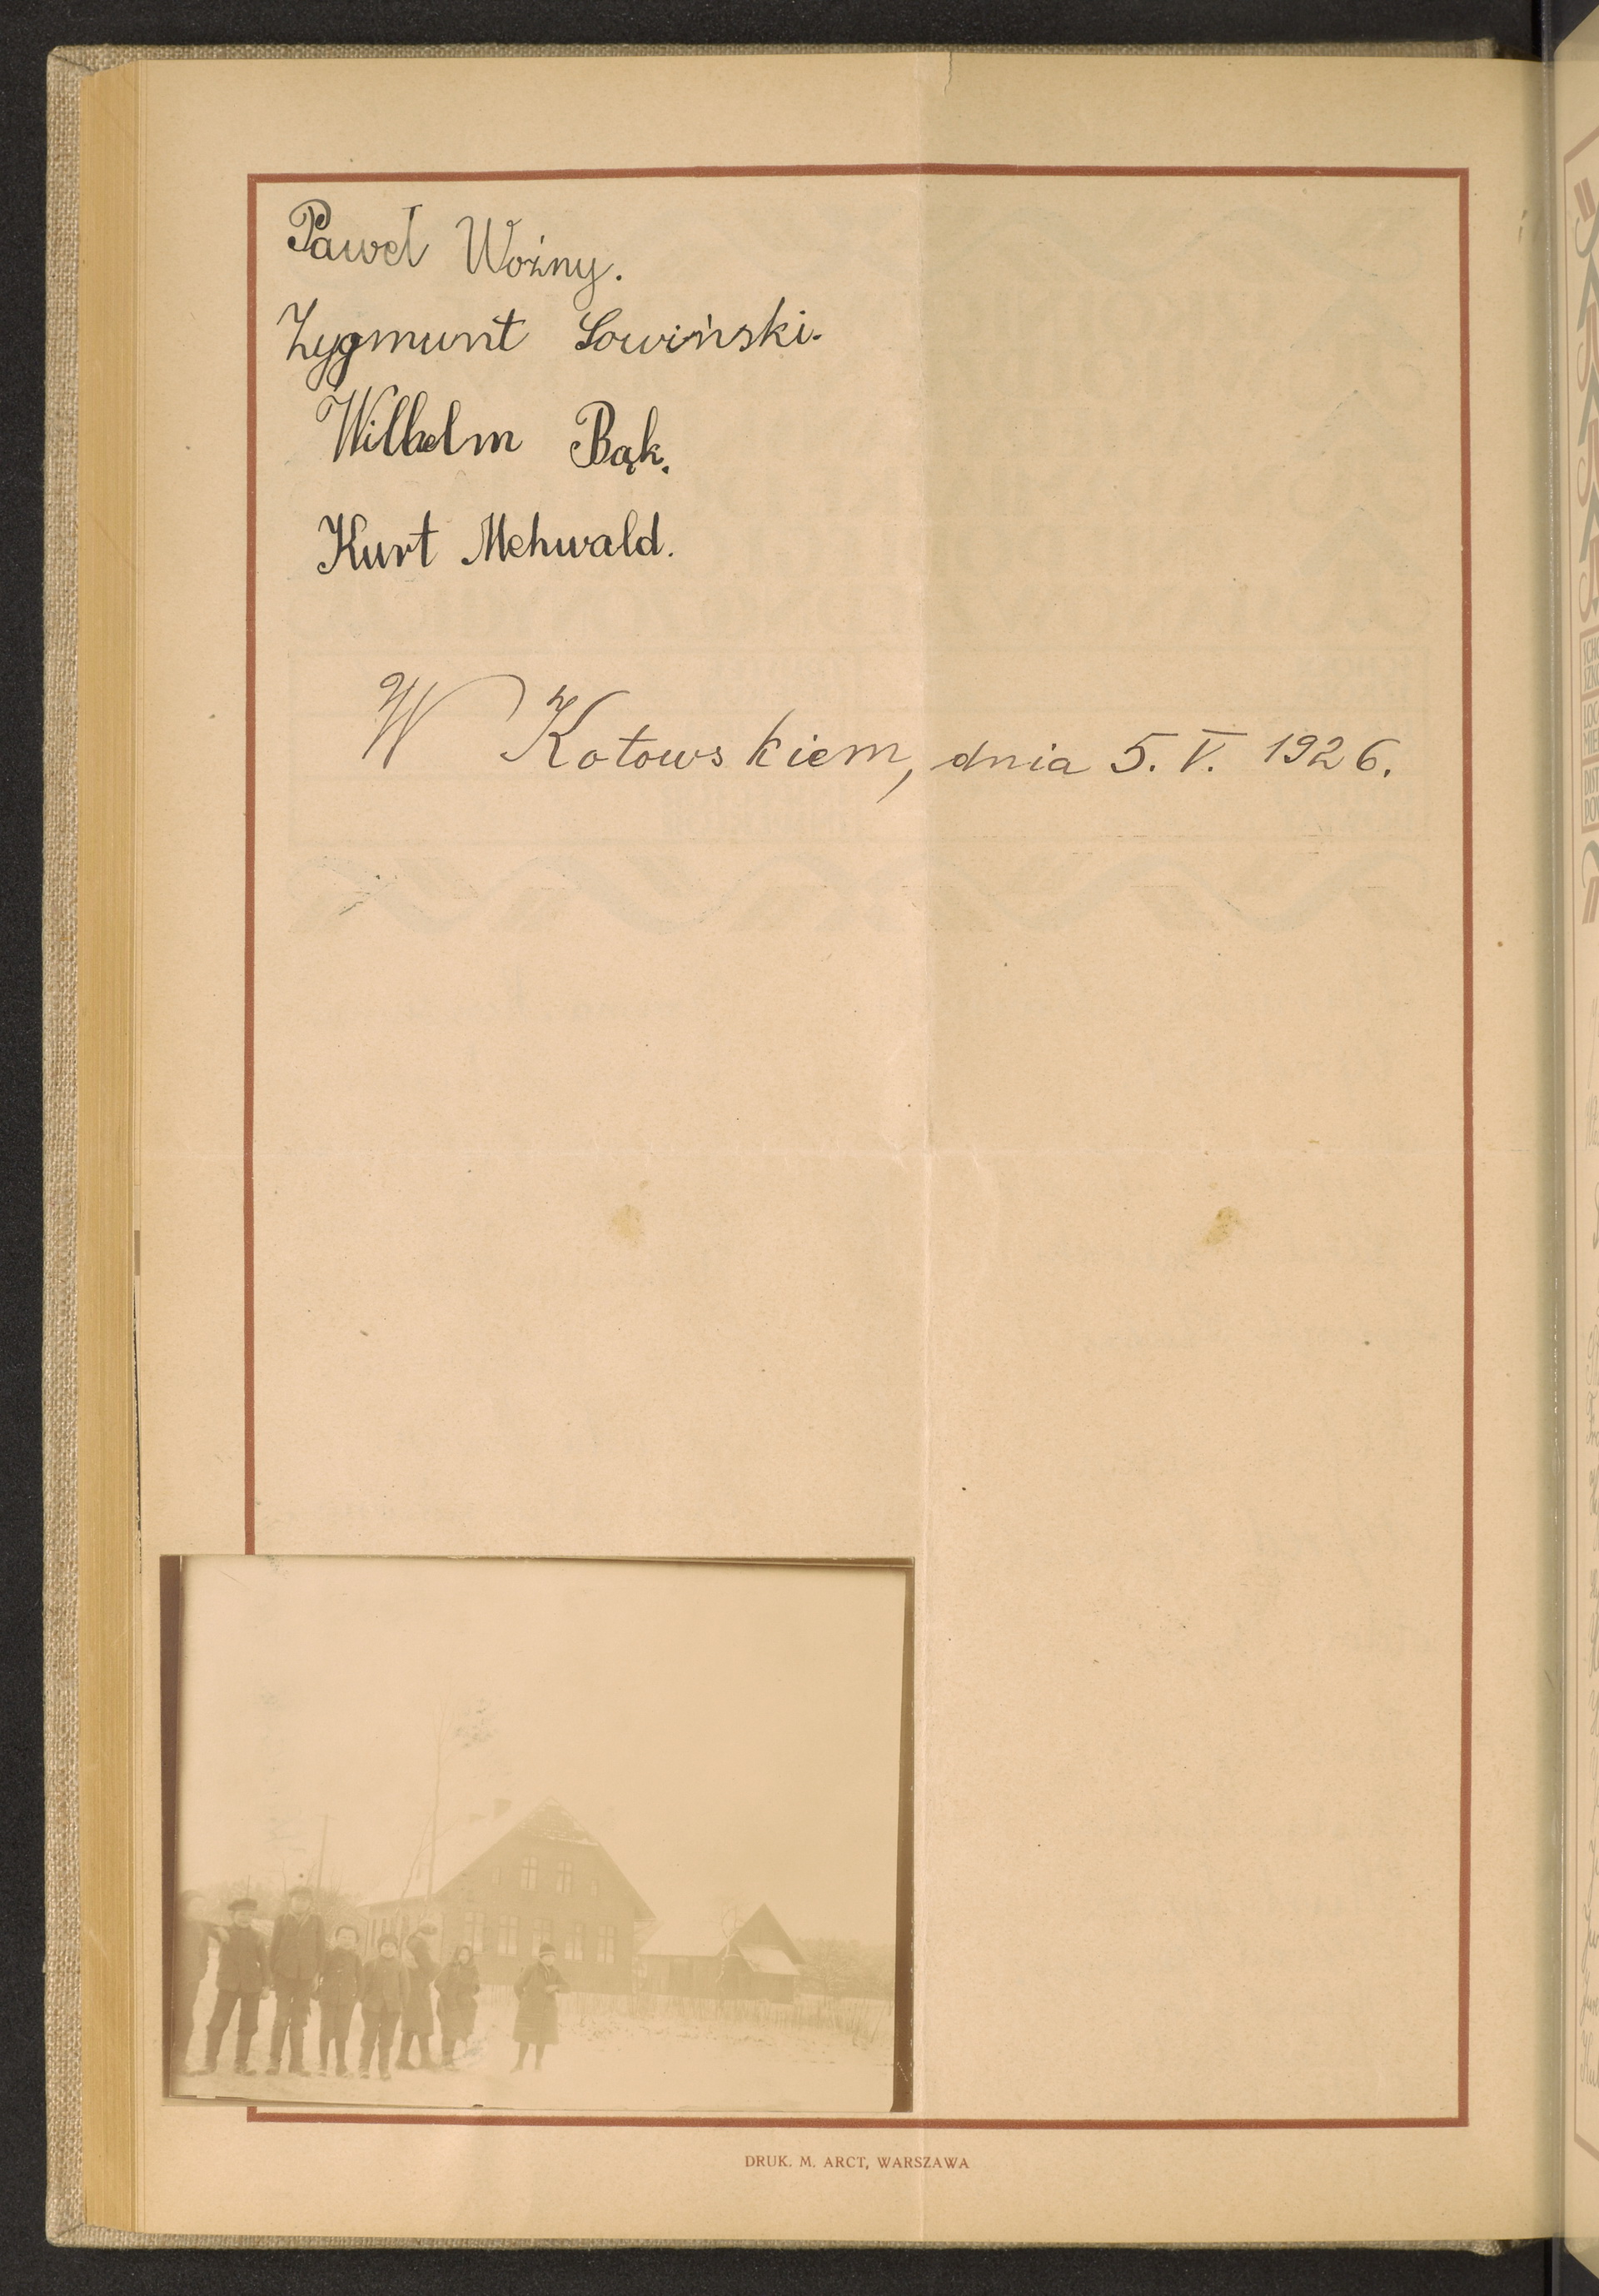 Paweł Woźny.
Zygmunt Sowiński.
Wilhelm Bąk.
Kurt Mehwald.
W Kotowskiem, dnia 5. V. 1926.
DRUK. M. ARCT, WARSZAWA